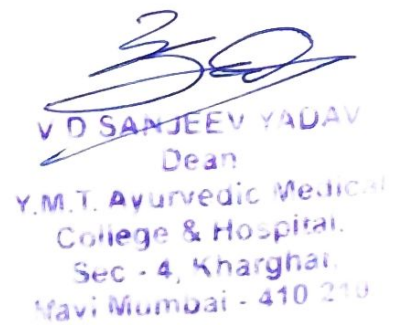 V D SANJEEV YADAV
Dean
Y.M.T. Ayurvedic Medical
College & Hospital.
Sec - 4, Kharghar,
Navi Mumbai - 410 210